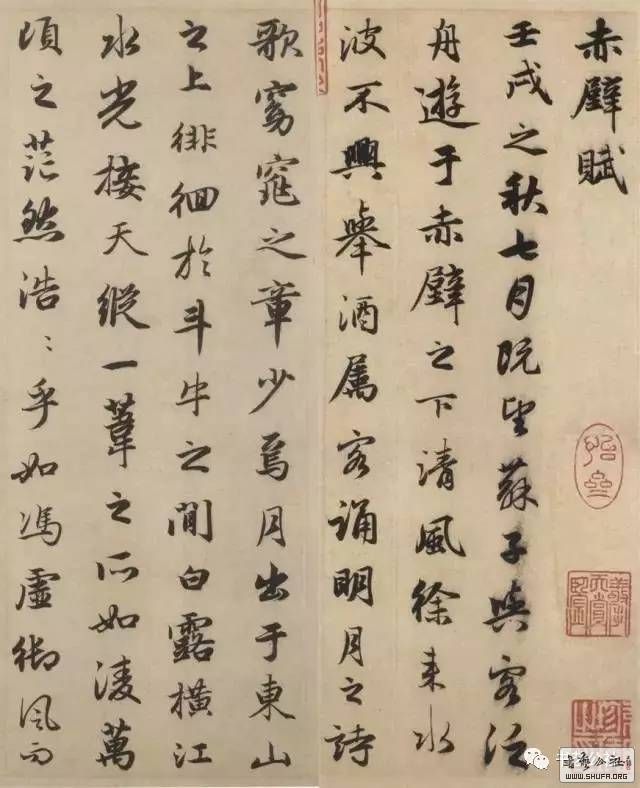 赤壁賦
壬戌之秋七月既望蘇子與客泛
舟遊于赤壁之下清風徐来水
波不興舉酒屬客誦明月之詩
歌窈窕之章少焉月出于東山
之上徘徊於斗牛之間白露橫江
水光接天縱一葦之所如凌萬
頃之茫然浩〻乎如馮虛御風而
書藝公社
WWW.SHUFA.ORG